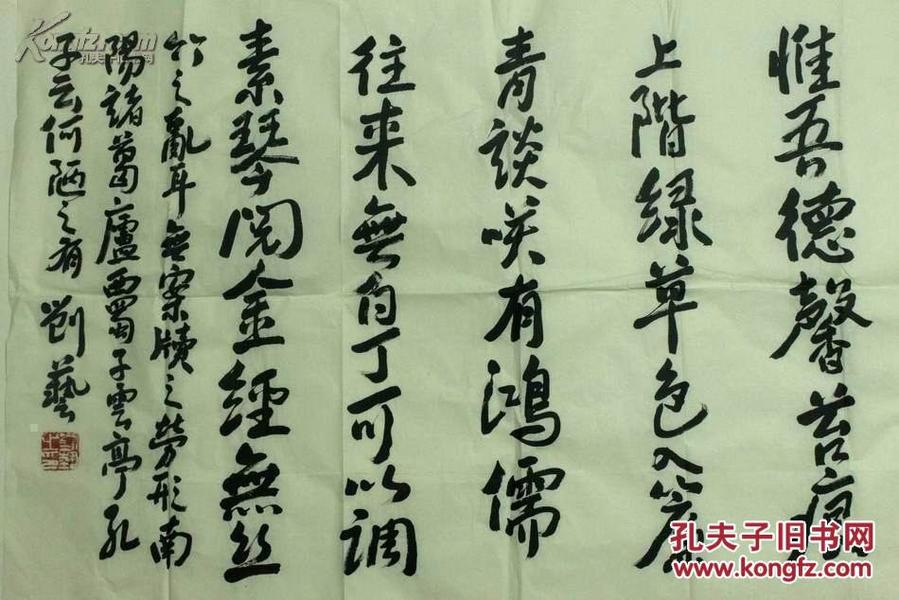 惟吾德馨苔痕
上階緑草色入簾
青談咲有鴻儒
往来無白丁可以調
素琴閱金經無丝
竹之亂耳無案牘之勞形南
陽諸葛廬西蜀子雲亭孔
子云何陋之有 劉藝
孔夫子旧书网
www.kongfz.com
Kongfz.com
孔夫子旧书网